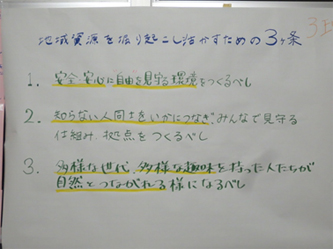 地域資源を掘り起こし活かすための3ヶ条
1. 安全・安心に自由を見守る環境をつくるべし
2. 知らない人同士をいかにつなぎ みんなで見守る
仕組み、拠点をつくるべし
3. 多様な世代、多様な趣味を持った人たちが
自然とつながれる様になるべし